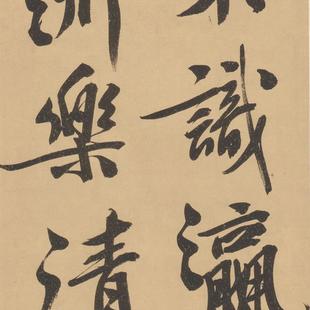 識瀛
洲樂清